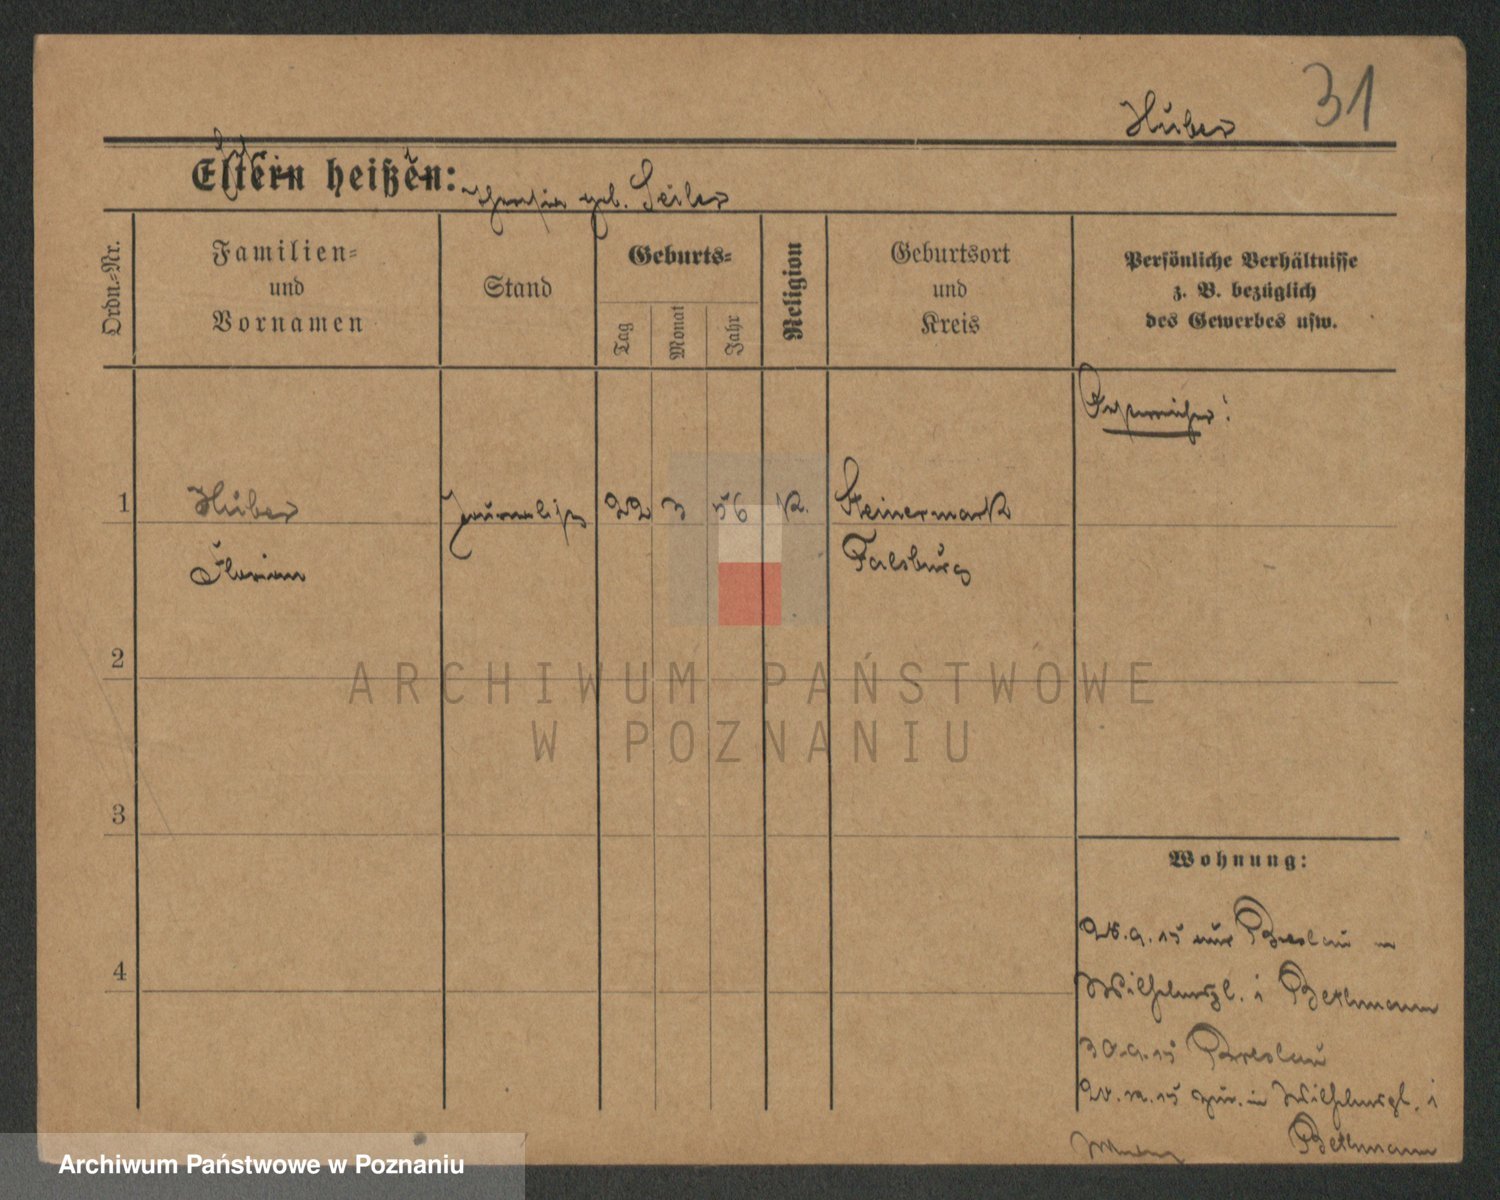 31
Huber
Eltern heißen:
geb. Seiler
Ordn.-Nr.
Familien-
und
Vornamen
Stand
Geburts-
Tag
Monat
Jahr
Religion
Geburtsort
und
Kreis
Persönliche Verhältnisse
z. B. bezüglich
des Gewerbes usw.
Österreicher!
1
Huber
Journalist
22
3
56
K.
Steiermark
Florian
Falsburg
2
ARCHIWUM PAŃSTWOWE
W POZNANIU
3
Wohnung:
9. 15 aus Breslau in
4
Wilhelmspl. 1 Bethmann
30. 9. 15 Breslau
15 zur. in Wilhelmspl. 1
Bethmann
Archiwum Państwowe w Poznaniu